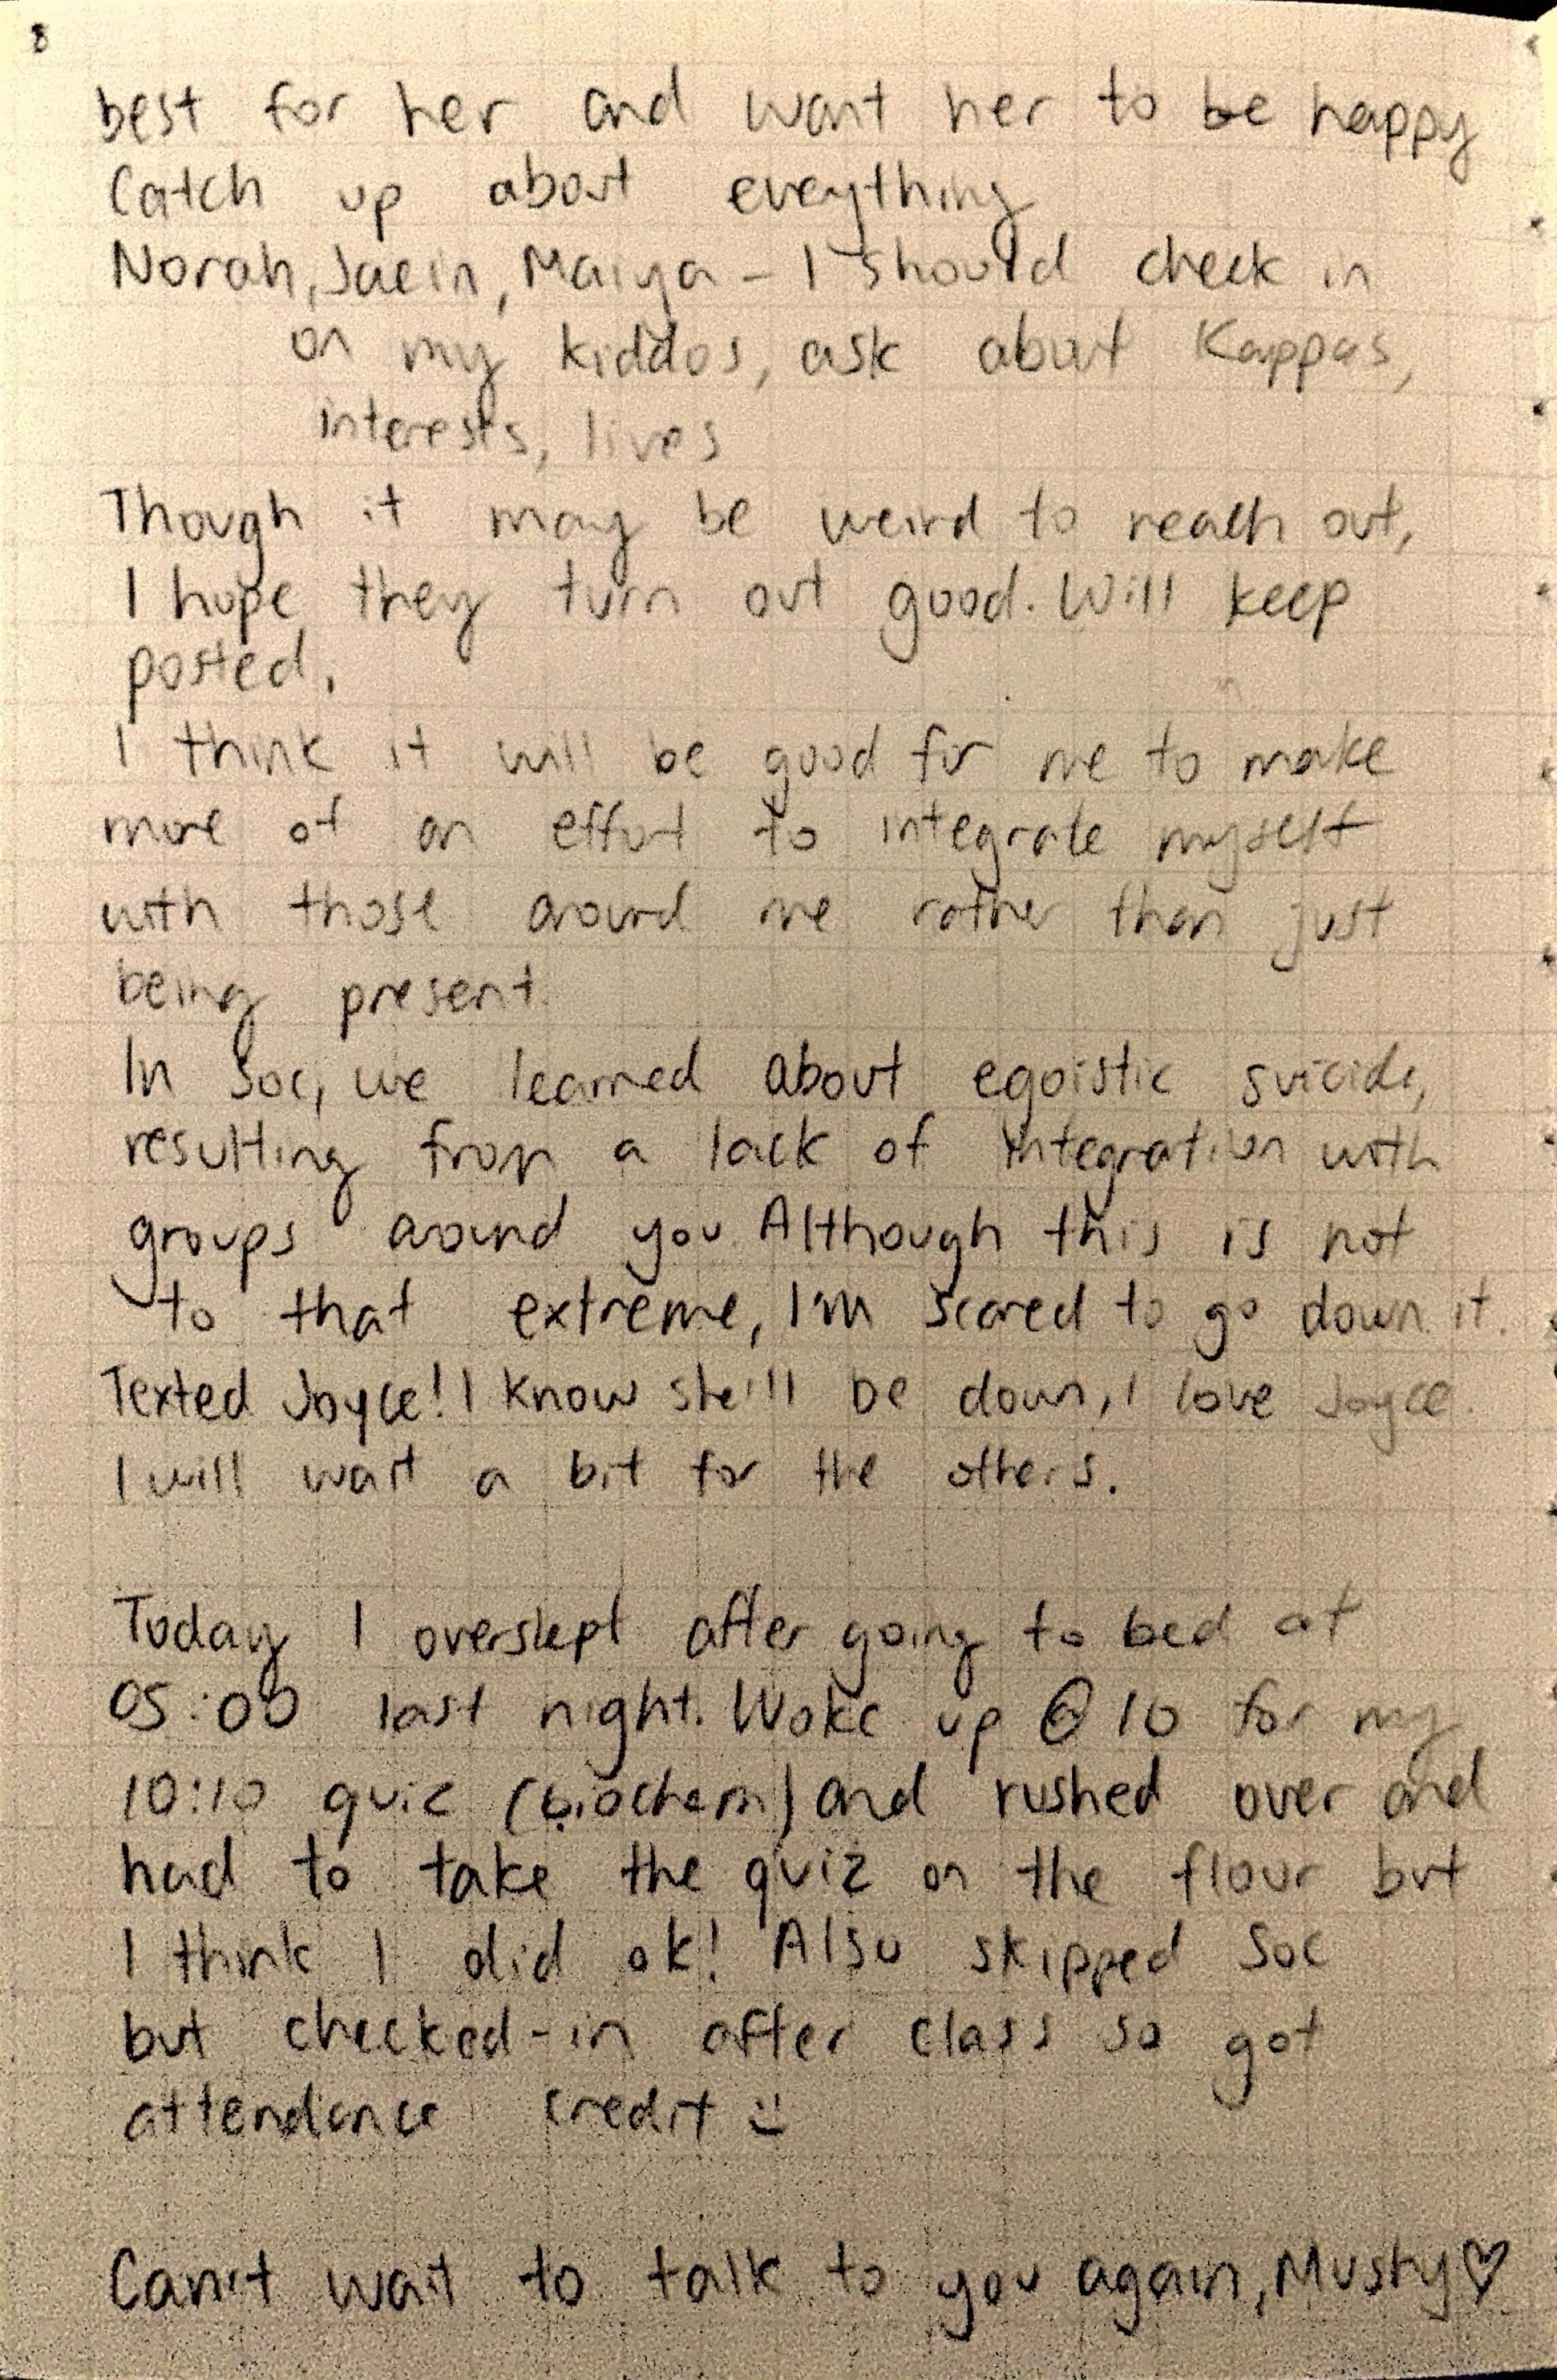 8
best for her and want her to be happy
Catch up about eveything
Norah, Jaein, Maiya - I should check in
on my kiddos, ask about Kappas,
interests, lives
Though it may be weird to reach out,
I hope they turn out good. Will keep
posted.
I think it will be good for me to make
more of an effort to integrate myself
with those around me rather than just
being present.
In Soc, we learned about egoistic suicide,
resulting from a lack of integration with
groups around you. Although this is not
to that extreme, I'm scared to go down it.
Texted Joyce! I know she'll be down, I love Joyce.
I will wait a bit for the others.
Today I overslept after going to bed at
05:00 last night. Woke up @ 10 for my
10:10 quiz (biochem) and rushed over and
had to take the quiz on the flour but
I think I did ok! Also skipped Soc
but checked-in after class so got
attendance credit :)
Can't wait to talk to you again, Mushy ♡